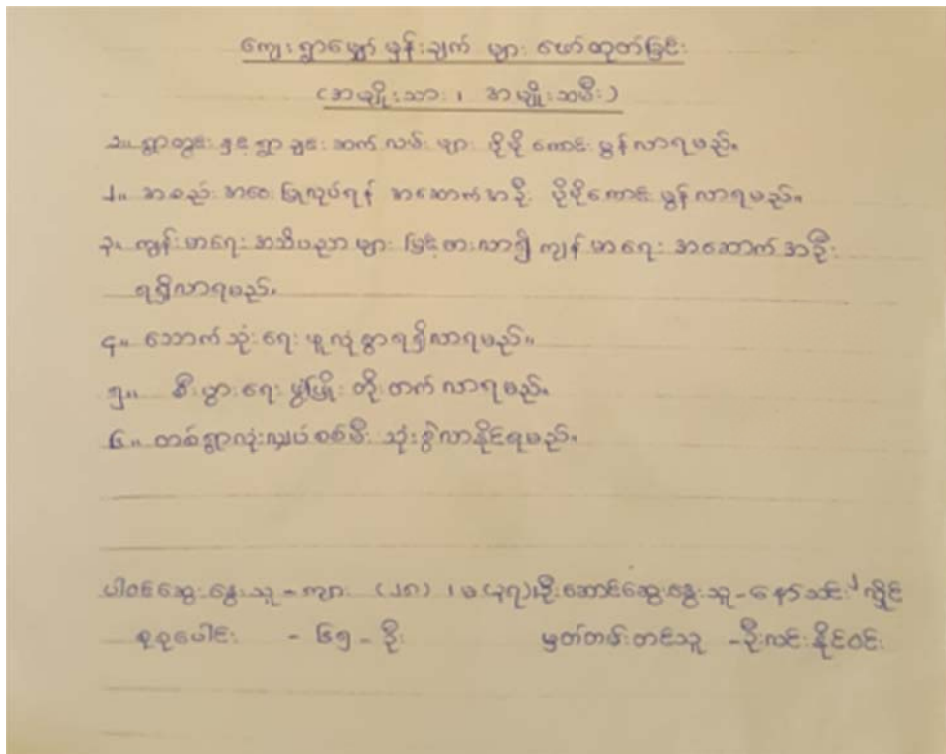 ကျေးရွာမျှော်မှန်းချက် များ ဖော်ထုတ်ခြင်း
(အမျိုးသား ၊ အမျိုးသမီး)
၁။ ရွာတွင်း နှင့် ရွာချင်း ဆက် လမ်း များ ပိုမို ကောင်း မွန်လာရမည်။
၂။ အစည်း အဝေး ပြုလုပ်ရန် အဆောက်အဦ ပိုမိုကောင်း မွန်လာရမည်။
၃. ကျွန်းမာရေး အသိပညာ များ မြင့်မားလာ၍ ကျန်းမာရေး အဆောက် အဦး
ရရှိလာရမည်.
၄။ သောက်သုံးရေ ဖူလုံစွာရရှိလာရမည်။
၅။ စီးပွားရေး ဖွံ့ဖြိုး တိုးတက် လာရမည်.
၆။ တစ်ရွာလုံးလျှပ်စစ်မီး သုံးစွဲလာနိုင်ရမည်.
ပါဝင်ဆွေးနွေးသူ - ကျား (၂၈) ၊ မ (၃၇) ဦးဆောင်ဆွေးနွေးသူ - နော်သင်း လှိုင်
စုစုပေါင်း - ၆၅ - ဦး မှတ်တမ်းတင်သူ - ဦးလင်းနိုင်ဝင်း